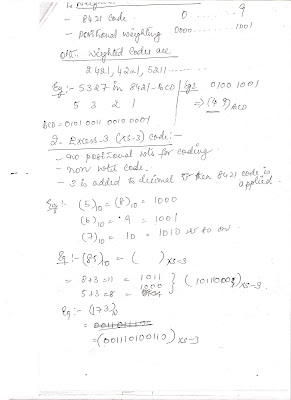 - 8421 code 0 ........ 9
- positional weighting 0000 ........ 1001
Oth. Weighted Codes are
2421, 4221, 5211 ......
Eg:- 5327 in 8421-BCD
5 3 2 1
BCD = 0101 0011 0010 0001
Eg: 0100 1001
⇒ (49)BCD
2- Excess-3 (XS-3) code:-
- no positional wts for coding
- non wtd code.
- 3 is added to decimal then 8421 code is applied.
Eg:- (5)10 = (8)10 = 1000
(6)10 = 9 = 1001
(7)10 = 10 = 1010
Eg:- (85)10 = ( )XS-3
= 8+3=11 = 1011
5+3=8 = 1000
(10111000)XS-3
Eg:- (173)10
= (001110100110)XS-3